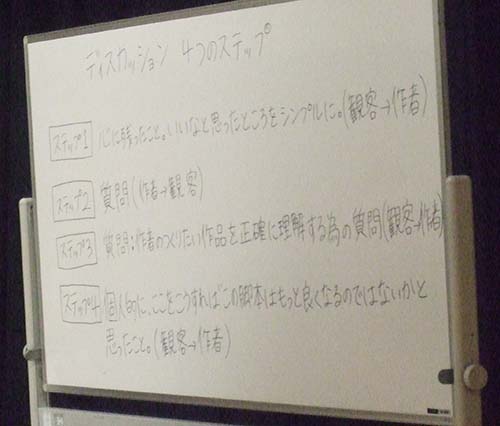 ディスカッション 4つのステップ
ステップ1 心に残ったこと。いいなと思ったところをシンプルに。(観客→作者)
ステップ2 質問(作者→観客)
ステップ3 質問:作者のつくりたい作品を正確に理解する為の質問(観客→作者)
ステップ4 個人的に、ここをこうすればこの脚本はもっと良くなるのではないかと
思ったこと。(観客→作者)